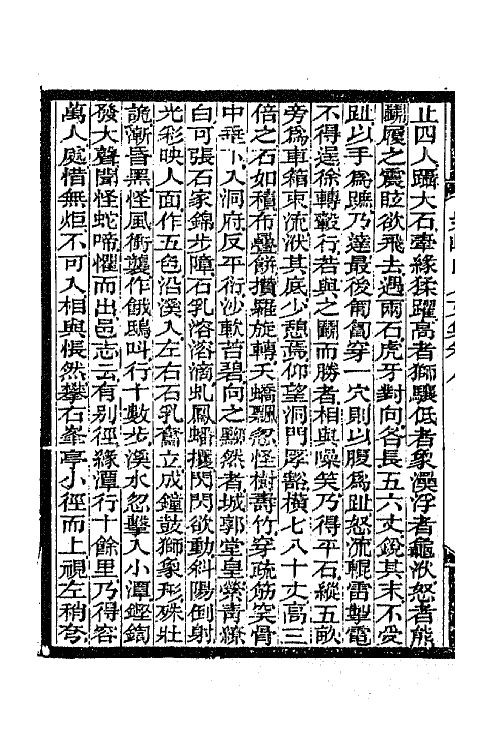 止四人躡大石牽緣猱躍高者獅驤低者象瀑浮者龜洑怒者熊
鬬履之震眩欲飛去過兩石虎牙對向各長五六丈銳其末不受
趾以手爲蹠乃達最後匍匐穿一穴則以腹爲趾怒流輥雷掣電
不得逞徐轉轂行若與之鬬而勝者相與噪笑乃得平石縱五畝
旁爲車箱束流洑其底少憩焉仰望洞門厚豁橫七八十丈高三
倍之石如積布疊餅攢羅旋轉天蟜飄忽怪樹壽竹穿疏筋突骨
中垂下入洞府反平衍沙軟苔碧向之黝然者城郭堂皇縈靑繚
白可張石家錦步障石乳溶溶滴虬鳳蟠攫閃閃欲動斜陽倒射
光彩映人面作五色沿溪入左右石乳奮立成鐘鼓獅象形殊壯
詭漸昏黑怪風衝襲作餓鴟叫行十數步溪水忽擊入小潭鏗鍧
發大聲聞怪蛇啼懼而出邑志云有别徑緣潭行十餘里乃得容
萬人處惜無炬不可入相與悵然攀石峯亭小徑而上視左稍夸